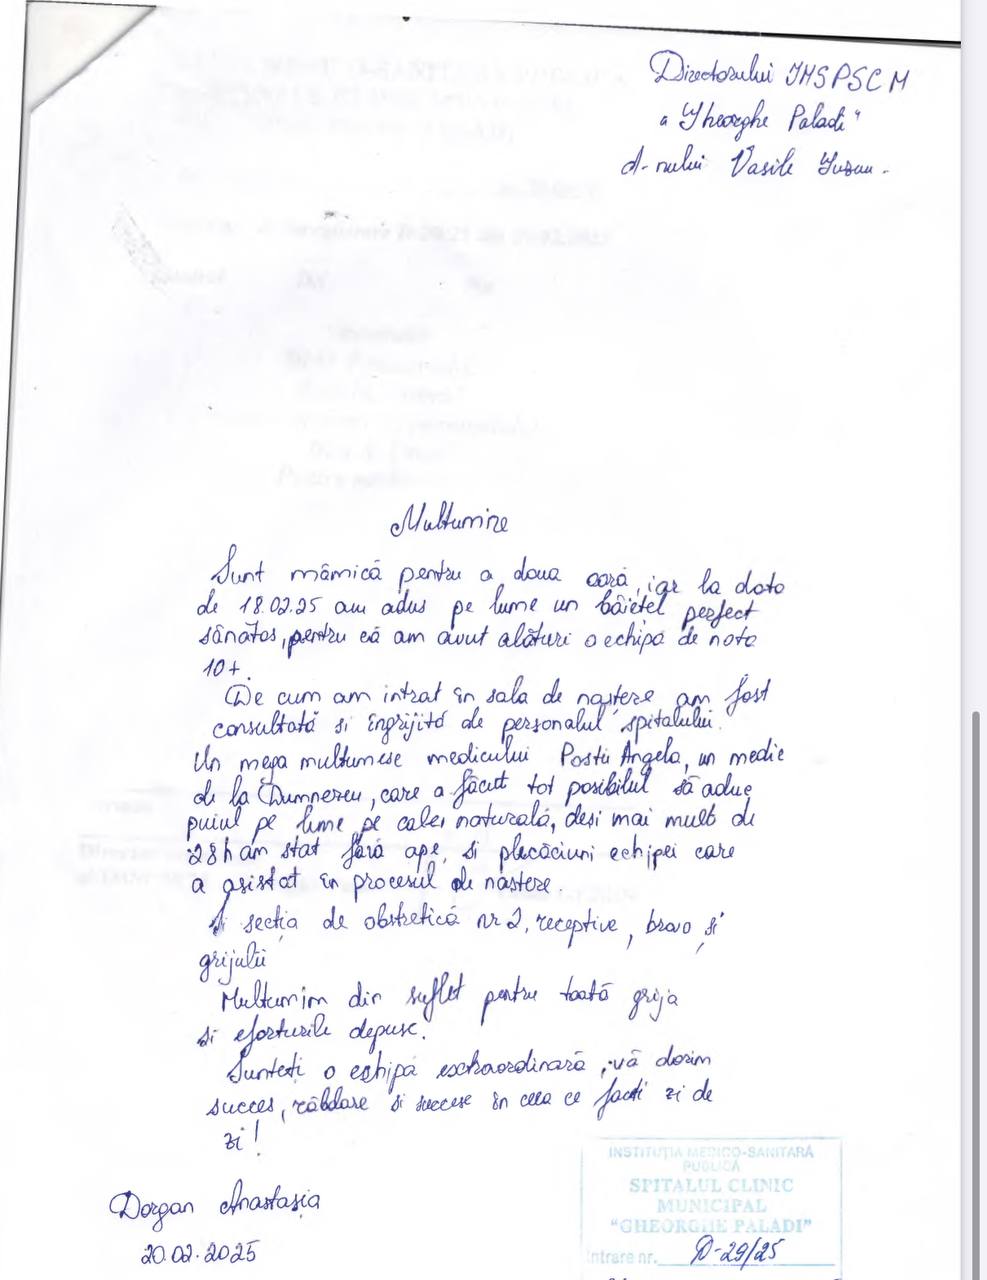 Directorului IMSPSCM
„Gheorghe Paladi"
d-nului Vasile Gusan.
Multumire
Sunt mămică pentru a doua oară, iar la data
de 18.02.25 am adus pe lume un băiețel perfect
sănătos, pentru că am avut alături o echipă de nota
10+.
De cum am intrat în sala de naștere am fost
consultată și îngrijită de personalul spitalului.
Un mega multumesc medicului Postu Angela, un medic
de la Dumnezeu, care a făcut tot posibilul să aduc
puiul pe lume pe calea naturală, deși mai mult de
28h am stat fără ape, si plecăciuni echipei care
a asistat în procesul de năstere
Si secția de obstretică nr 2, receptive, bravo și
grijulii
Multumim din suflet pentru toată grija
si eforturile depuse.
Sunteți o echipă exstraordinară, vă dorim
succes, răbdare si succese în ceea ce faceti zi de
zi!
INSTITUȚIA MEDICO-SANITARĂ
PUBLICĂ
SPITALUL CLINIC
MUNICIPAL
"GHEORGHE PALADI"
Intrare nr. D-29/25
Dorgan Anastasia
20.02.2025